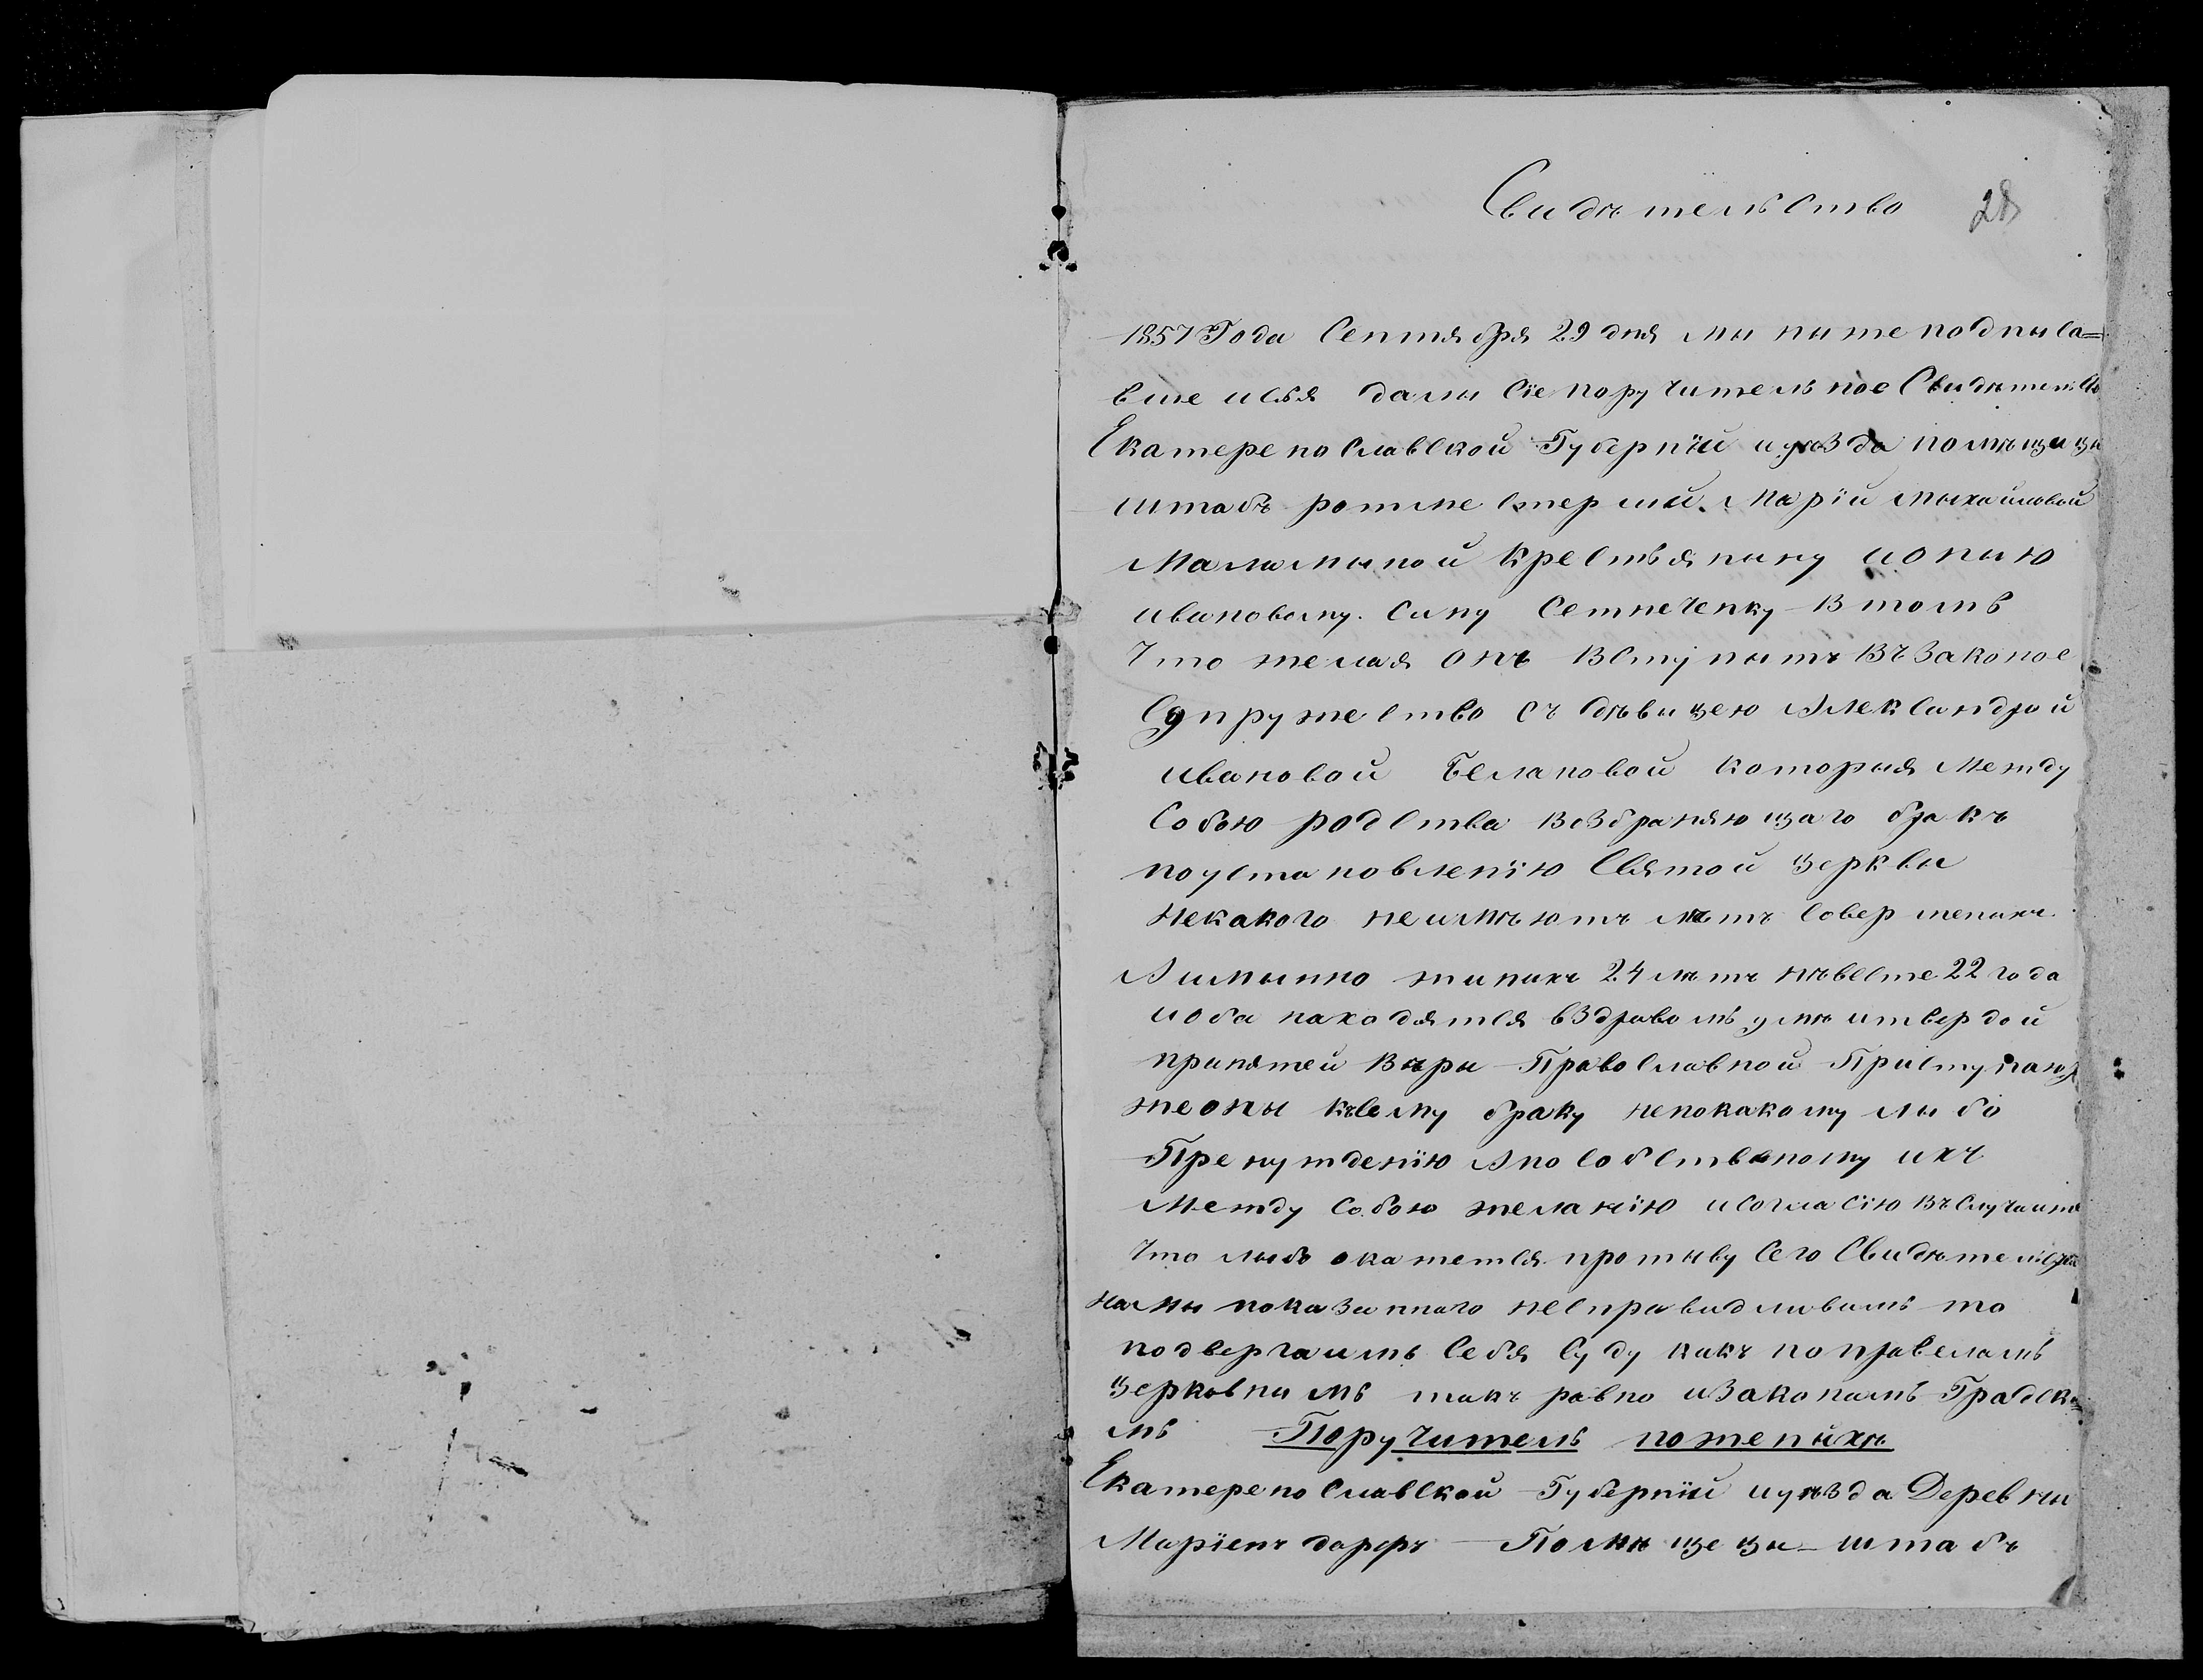 Свидѣтельство 28
1857 Года Септября 29 дня мы ниже подпыса=
вше ися дали Сіе поручительное Свидѣтельство
Екатеренославской Губерніи иуѣзда помѣщицы
штабъ ротместерши Маріи Мыхайловой
Маламыной Крестьянину ионию
ивановому Сыну Семнеченку Втомъ
Что желая онъ Вступытъ Въ Законое
Супружество съ дѣвыцею Александрой
ивановой Белановой которыя Между
Собою родства Возбраняющаго бракъ
поустановленію Святой Церквы
Некакого неимѣютъ лѣтъ Совершеныхъ
А имынно жинихъ 24 лѣтъ нѣвесте 22 года
иоба находятся вЗдравомъ умѣ итвердой
принятей Вѣры Православной Приступают
жеоны кЪсему браку непокакому лыбо
Пренуждению Апособственому ихъ
Между Собою желанію иСогласію Въ Случаиже
Что лыбо окажется протыву Сего Свидѣтельства
Намы показаннаго неСправидливымъ то
подвергаимъ Себя Суду какъ поправеламъ
Церковнимъ такъ равно иЗаконамъ Градски=
мъ Поручитель поженыхѣ
Екатеренославской Губерніи иуѣзда Деревны
Маріенъ дорфъ Помѣщецы штабъ